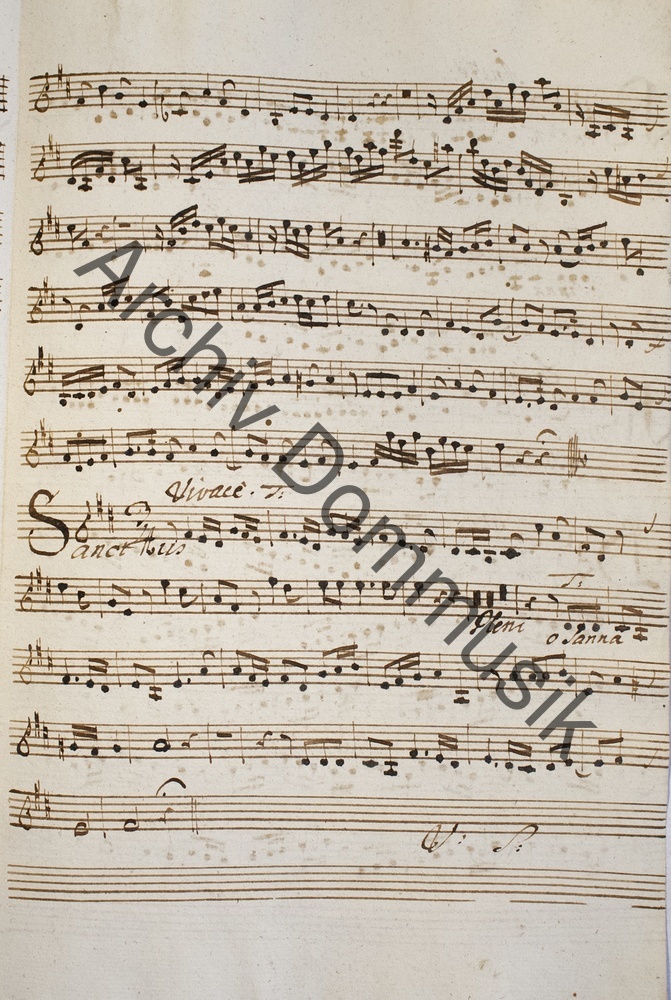 Vivace. T:
Sanctus
Pleni
T:
osanna
V: S:
Archiv Dommusik